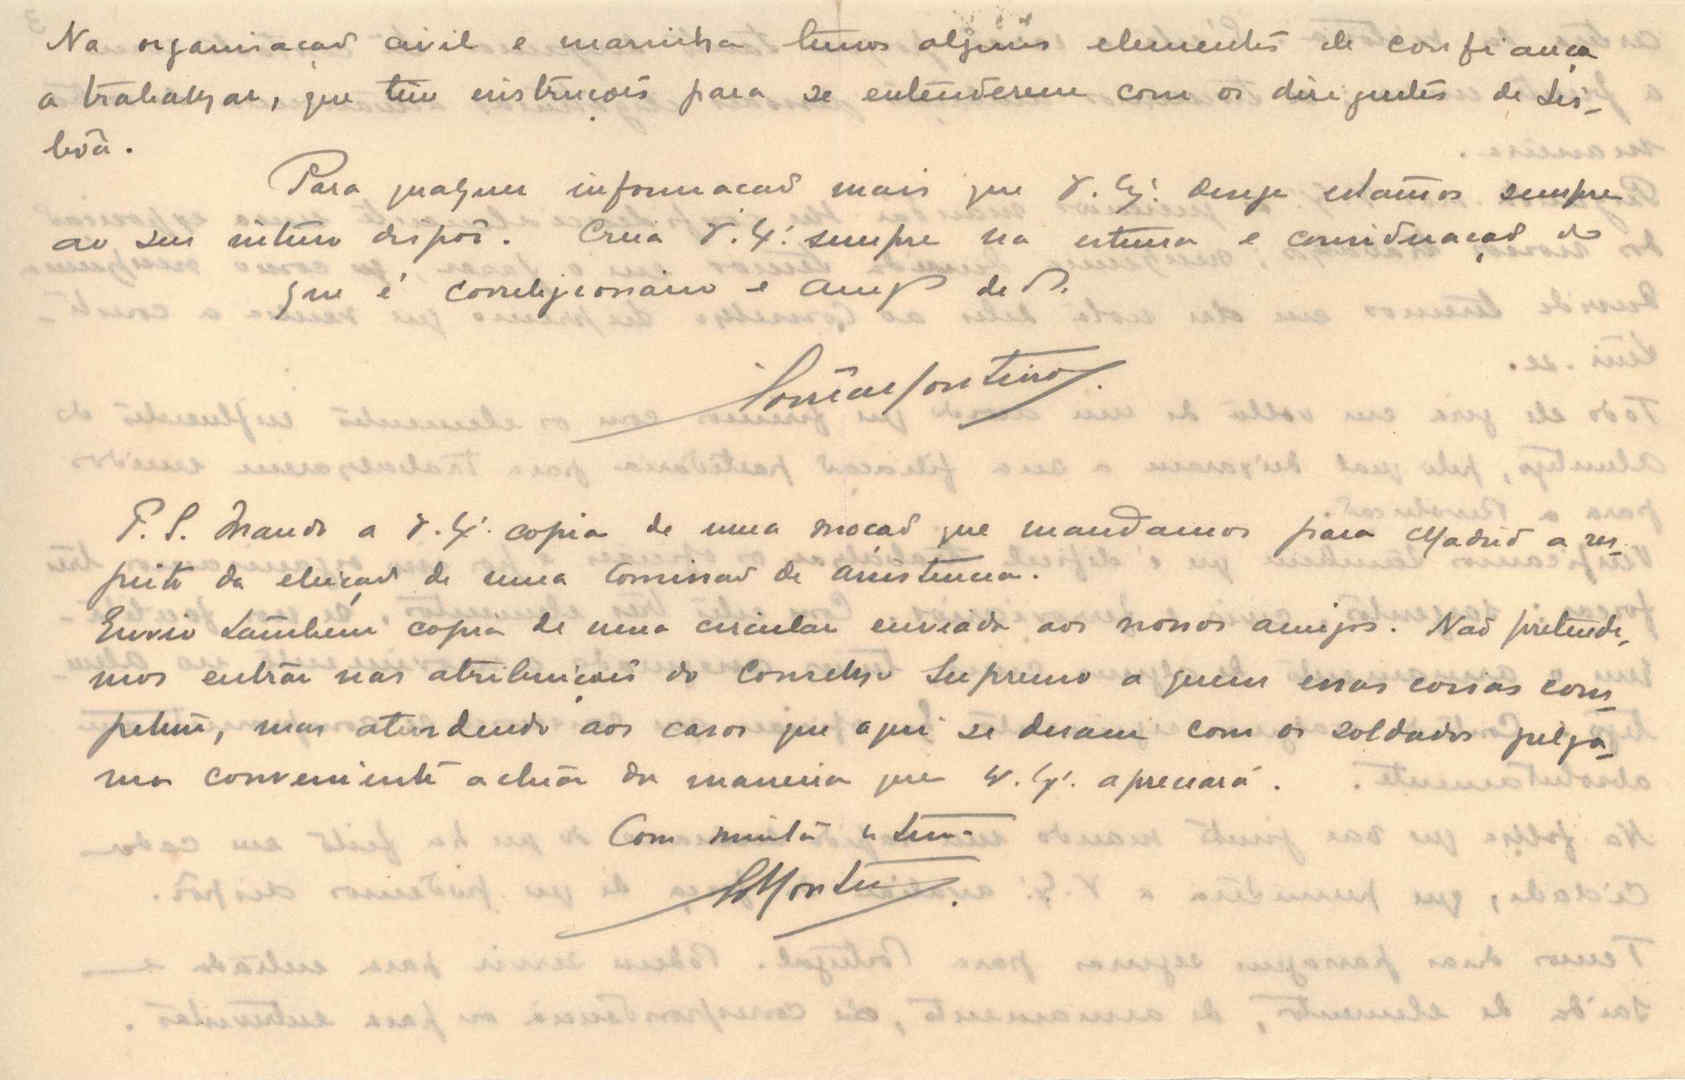 Na organisação civil e marinha temos alguns elementos de confiança
a trabalhar, que têm instruções para se entenderem com os dirigentes de Lis-
bôa.
Para qualquer informação mais que V. Ex.ª deseje estamos sempre
ao seu inteiro dispôr. Creia V. Ex.ª sempre na estima e consideração do
que é correligionário e amg.º de V.
P.S. Mando a V. Ex.ª copia de uma moção que mandamos para Madrid a res-
peito da eleição de uma Comissão de Assistencia.
Envio também copia de uma circular enviada aos nossos amigos. Não pretende-
mos entrar nas atribuições do Conselho Supremo a quem essas coisas com-
petem, mas atendendo aos casos que aqui se deram com os soldados julgá-
mos conveniente actuar da maneira que V. Ex.ª apreciará.
Com muita estima